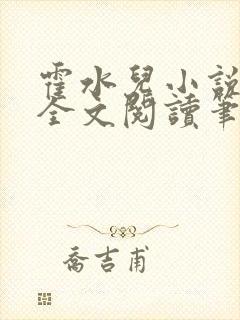 霍水兒小說
全文閱讀筆
喬吉甫